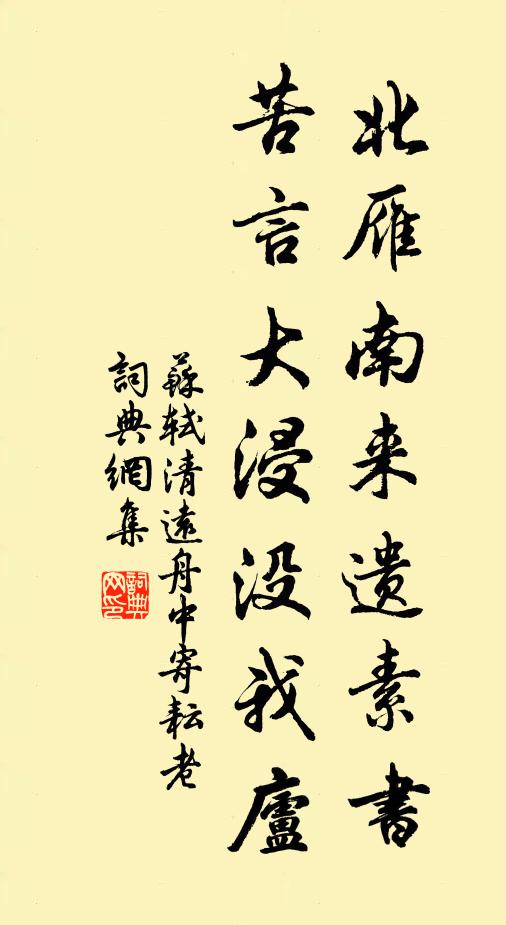 北雁南来遗素書
苦言大浸没我廬
蘇軾清遠舟中寄耘老
詞典網集
詞典网印